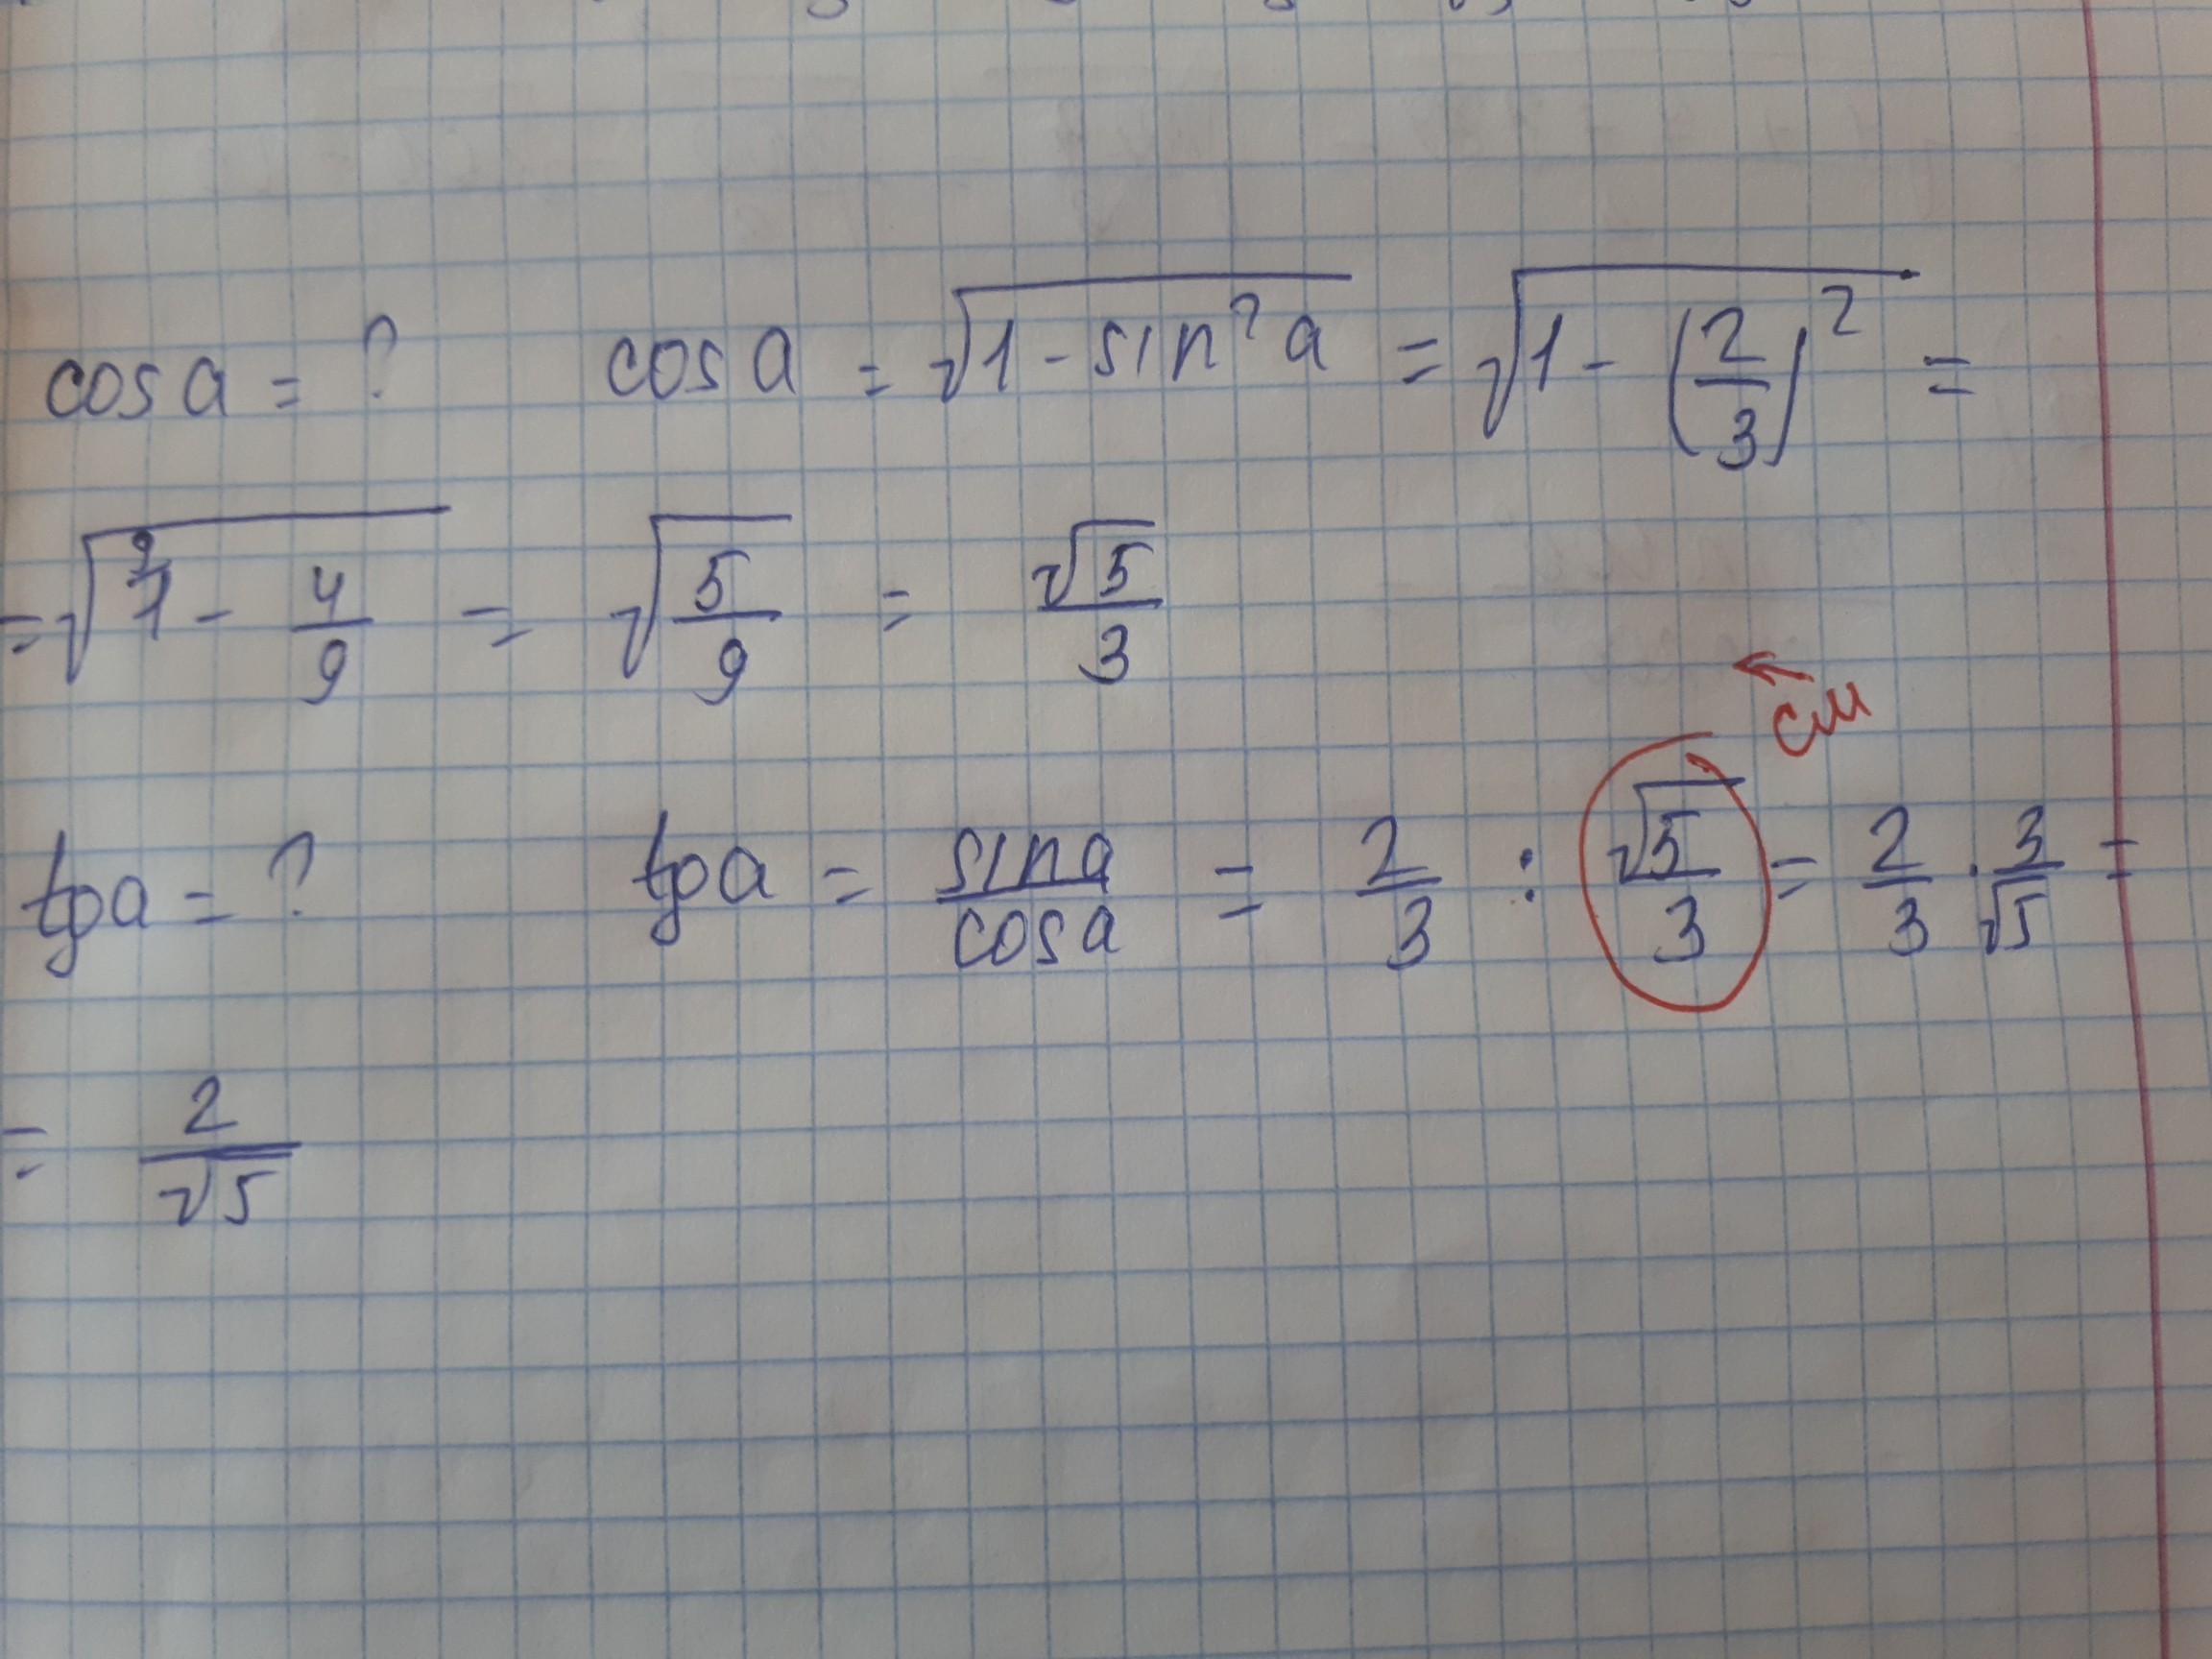 cos a = ? cos a = √(1 - sin² a) = √(1 - (2/3)²) =
= √(1⁹ - 4/9) = √(5/9) = √5/3
← см
tg a = ? tg a = sin a/cos a = 2/3 : √5/3 = 2/3 · 3/√5 =
= 2/√5